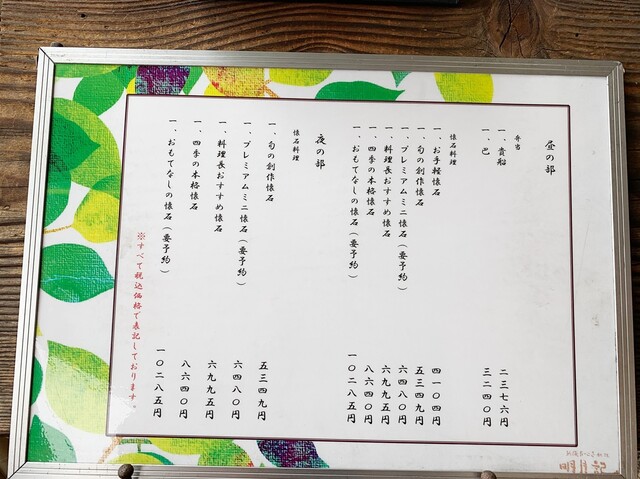 昼の部
弁当
一、貴船 二三七六円
一、巴 三二四〇円
懐石料理
一、お手軽懐石 四一〇四円
一、旬の創作懐石 五三四九円
一、プレミアムミニ懐石(要予約) 六四八〇円
一、料理長おすすめ懐石 六九九五円
一、四季の本格懐石 八六四〇円
一、おもてなしの懐石(要予約) 一〇二八五円
夜の部
懐石料理
一、旬の創作懐石 五三四九円
一、プレミアムミニ懐石(要予約) 六四八〇円
一、料理長おすすめ懐石 六九九五円
一、四季の本格懐石 八六四〇円
一、おもてなしの懐石(要予約) 一〇二八五円
※すべて税込価格で表記しております。